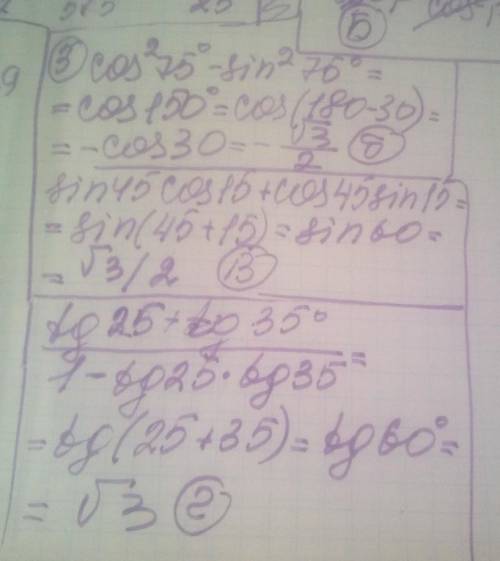 ③ cos²75° - sin²75° =
= cos150° = cos(180-30) =
= -cos30 = -√3/2 Ⓑ
sin45cos15 + cos45sin15 =
= sin(45+15) = sin60 =
= √3/2 Ⓑ
tg25 + tg35°
1 - tg25 · tg35 =
= tg(25+35) = tg60° =
= √3 ②